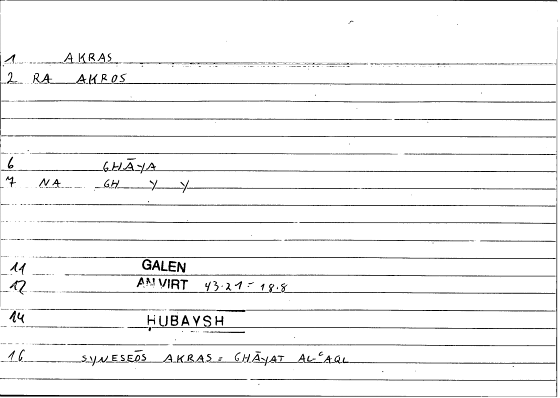 1 AKRAS
2 RA AKROS
6 GHĀYA
7 NA GH Y Y
11 GALEN
12 AN VIRT 43.21 = 18.8
14 ḤUBAYSH
16 SYNESEŌS AKRAS = GHĀYAT AL-ʿAQL